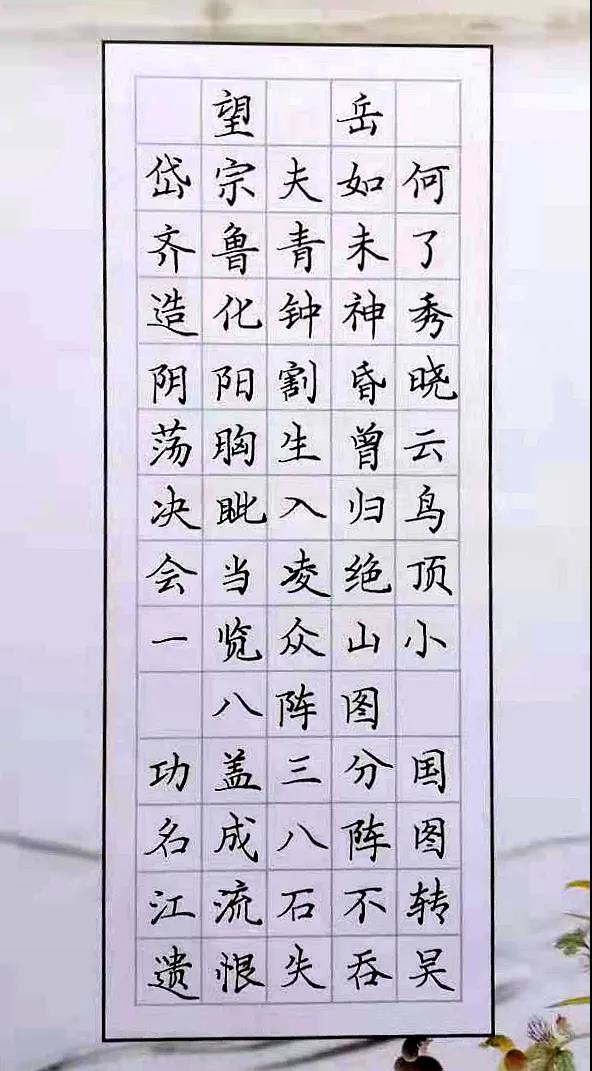 望岳
岱宗夫如何
齐鲁青未了
造化钟神秀
阴阳割昏晓
荡胸生曾云
决眦入归鸟
会当凌绝顶
一览众山小
八阵图
功盖三分国
名成八阵图
江流石不转
遗恨失吞吴